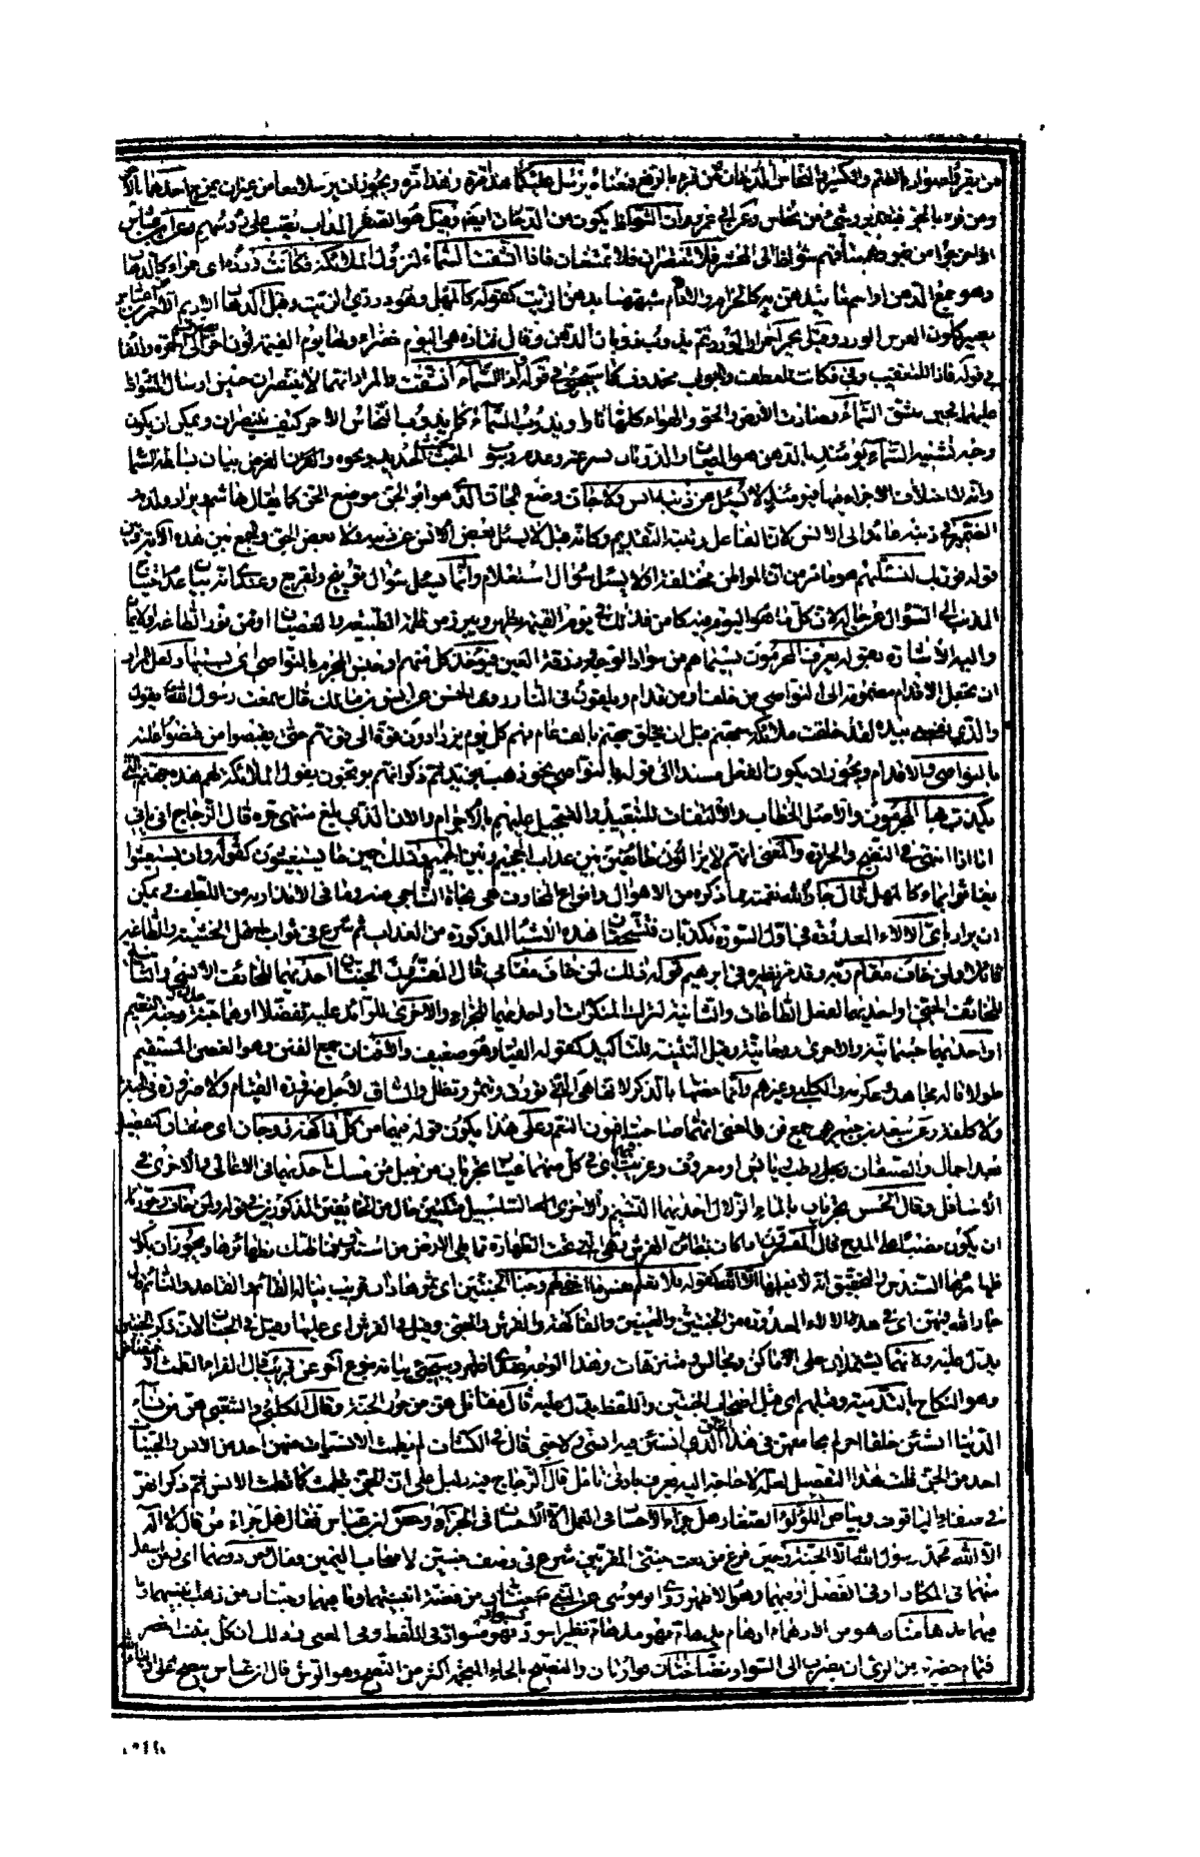 من يقر قاصواره بالضم والكسر والنحاس الدخان فمن قره بالرفع فمعناه يرسل عليكما هذا مرة وهذا مرة ويجوز ان يرسلا معا من غير ان يمزج احدهما بالآخر
ومن قره بالجر فبتقدير وشيء من نحاس وعن ابي عمرو ان الشواظ يكون من الدخان ايضا وقيل هو الصفر المذاب يصب على رؤسهم وعن ابن عباس
اذا خرجوا من قبورهم ساقهم شواظ الى المحشر فلا تنتصران فلا تمتنعان فاذا انشقت السماء لنزول الملائكة فكانت وردة اى حمراء كالدهان
وهو جمع الدهن او اسم ما يدهن به كالحزام والادام شبهها بدهن الزيت كقوله كالمهل وهو دردي الزيت وقيل الدهان الاديم الاحمر
يصير كلون الفرس الورد وقيل يحمر احمرار الورد ثم يذوب ذوبان الدهن وقال قتادة هي اليوم خضراء ولها يوم القيمة لون آخر الى الحمرة والفا
في قوله فاذا للتعقيب وفي فكانت للعطف والجواب محذوف كما سيجئ في قوله اذا السماء انشقت والمراد انهما لا ينتصران حين ارسال الشواظ
عليهما فحين تنشق السماء وصارت الارض والجو والهواء كلها نارا ويذوب السماء كما يذوب النحاس الاحمر كيف ينتصران ويمكن ان يكون
وجه تشبيه السماء يومئذ بالدهن هو الميعان والذوبان بسرعة وعدم رسوب الخبث كخبث الحديد ونحوه
وانه لا اختلاف للاجزاء فيها فيومئذ لا يسئل عن ذنبه انس ولا جان وضع الجان الذي هو ابو الجن موضع الجن كما يقال هاشم ويراد ولده و
الضمير في ذنبه عائد الى الانس لان الفاعل رتبته التقديم وكانه قيل لا يسئل بعض الانس عن ذنبه ولا بعض الجن والجمع بين هذه الآية وبين
قوله فوربك لنسئلنهم هو ما مر من ان المواطن مختلفة او لا يسئل سؤال استعلام وانما يسئل سؤال توبيخ وتقريع وعندى انه بيان عدم احتياج
المذنب الى السؤال عن حاله لان كل ما هو اليوم فيه كامن فذلك في يوم القيمة يظهر ويبرز من ظلمة الطبيعة والعصيان او من نور الطاعة والايمان
واليه الاشارة بقوله يعرف المجرمون بسيماهم من سواد الوجه وزرقة العين فيؤخذ كل منهم او جنس المجرم بالنواصي اى بسببها ولعل المراد
ان يجعل الاقدام مضمومة الى النواصي من خلف او من قدام ويلقون في النار روى الحسن عن انس بن مالك قال سمعت رسول الله يقول
والذي نفسي بيده لقد خلقت ملائكة جهنم قبل ان يخلق جهنم بالف عام فهم كل يوم يزدادون قوة الى قوتهم حتى يقبضوا من قبضوا عليه
بالنواصي والاقدام ويجوز ان يكون الفعل مسندا الى قوله بالنواصي نحو ذهب بزيد ثم ذكر انهم يوبخون بقول الملائكة لهم هذه جهنم التي
يكذب بها المجرمون والاصل الخطاب والالتفات للتبعيد والتسجيل عليهم بالاجرام والآن الذي بلغ منتهى حره قال الزجاج انى يأني
انا اذا انتهى في النضج والحرارة والمعنى انهم لا يزالون طائفين بين عذاب الجحيم وبين الحميم وذلك حين ما يستغيثون كقوله وان يستغيثوا
يغاثوا بماء كالمهل قال جار الله نعمته مما ذكره من الاهوال وانواع المخاوف هي نجاة الناجي منه وما في الانذار به من اللطف ويمكن
ان يراد باى الآلاء المعدودة في اول السورة تكذبان فتستحقا هذه الاشياء المذكورة من العذاب ثم شرع في ثواب اهل الخشية والطاعة
قائلا ولمن خاف مقام ربه وقد مر نظيره في ابراهيم في قوله ذلك لمن خاف مقامي قال المفسرون الجنتان احديهما للخائف الانسي والثانية
للخائف الجني او احديهما لفعل الطاعات والثانية لترك المنكرات او احديهما للجزاء والاخرى للزائد عليه تفضلا او هما جنة عدن وجنة النعيم
او احديهما جسمانية والاخرى روحانية وقيل التثنية للتأكيد كقوله القيا وهو ضعيف والافنان جمع الفنن وهو الغصن المستقيم
طولا قاله مجاهد وعكرمة والكلبي وغيرهم وانما خصها بالذكر لانها هي التي تورق وتثمر وتظل والساق لاجل ضرورة القيام ولا ضرورة في الجنة
ولا كلفة وعن سعيد بن جبير هي جمع فن والمعنى انهما صاحبتا فنون النعم وعلى هذا يكون قوله فيهما من كل فاكهة زوجان اى صنفان كتفصيل
بعد اجمال والصنفان رطب ويابس او معروف وغريب اى في كل منهما عينان تجريان من جبل من مسك احديهما في الاعالي والاخرى في
الاسافل وقال الحسن تجريان بالماء الزلال احديهما التسنيم والاخرى السلسبيل متكئين حال من الخائفين المذكورين في قوله ولمن خاف ويجوز
ان يكون نصبا على المدح قال المفسرون واذا كان بطائن الفرش وهي التي تحت الظهارة مما يلي الارض من استبرق فما ظنك بظهائرها ويجوز ان يكون
ظهائرها السندس والتحقيق انه لا يعلمها الا الله كقوله فلا تعلم نفس ما اخفي لهم وجنا الجنتين اى ثمرهما دان قريب يناله القائم والقاعد والنائم قال
جار الله فيهن اى في هذه الآلاء المعدودة من الجنتين والعينين والفاكهة والفرش والجني وقيل في الفرش اى عليها وقيل في الجنان لان ذكر الجنتين
يدل عليه ولانهما يشتملان على اماكن ومجالس ومتنزهات وهذا الوجه عندى اظهر وسيجئ بيانه بنوع آخر عن قريب قال الفراء الطمث الافتضاض
وهو النكاح بالتدمية وقبلهم اى قبل اصحاب الجنتين واللفظ يدل عليه قال مقاتل هن من حور الجنة وقال الكلبي والشعبي هن من نساء
الدنيا انشئن خلقا آخر لم يجامعهن في هذا الخلق الذي انشئن فيه انسي ولا جني قال في الكشاف لم يطمث الانسيات منهن احد من الانس ولا الجنيات
احد من الجن قلت هذا التفصيل لعله لا حاجة اليه يعرف بادنى تأمل قال الزجاج فيه دليل على ان الجن يطمث كما يطمث الانس ثم ذكر انهن
في صفاء الياقوت وبياض اللؤلؤ الصغار هل جزاء الاحسان في العمل الا الاحسان في الجزاء وعن ابن عباس فقال هل جزاء من قال لا اله
الا الله محمد رسول الله الا الجنة وحين فرغ من نعت جنتي المقربين شرع في وصف جنتين لاصحاب اليمين وقال ومن دونهما اى ومن اسفل
منهما في المكان او في الفضل او فيهما وهو الاظهر روى ابو موسى عن النبي جنتان من فضة آنيتهما وما فيهما وجنتان من ذهب آنيتهما و
ما فيهما مدهامتان هو من الادهام ادهام يدهام فهو مدهام نظير اسواد يسواد فهو مسواد في اللفظ وفي المعنى وذلك ان كل نبت اخضر
فتمام خضرته من الري ان يضرب الى السواد نضاختان فوارتان والنضخ بالخاء المعجمة اكثر من النضح وهو الرش قال ابن عباس